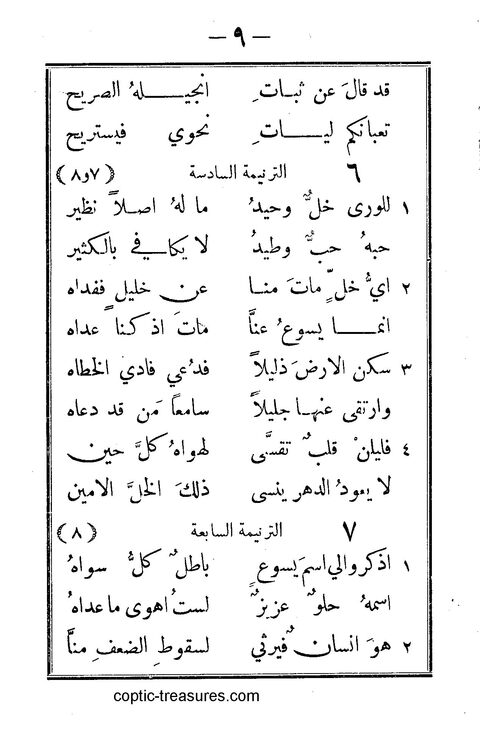 — ٩ —
قد قالَ عن ثباتِ انجيلهُ الصريح
تعبانكم لياتِ نحوي فيستريح
٦ الترنيمة السادسة (٧و٨)
١ للورى خلٌّ وحيدُ ما لهُ اصلاً نظير
حبهُ حبٌّ وطيدُ لا يكافي بالكثير
٢ ايُّ خلٍّ ماتَ منا عن خليل ففداه
انما يسوعُ عنَّا ماتَ اذ كنا عداه
٣ سكن الارضَ ذليلاً فدُعي فادي الخطاه
وارتقى عنها جليلاً سامعاً مَن قد دعاه
٤ فليلن قلبٌ تقسَّى لهواهُ كلَّ حين
لا يعودُ الدهر ينسى ذلكَ الخلَّ الامين
٧ الترنيمة السابعة (٨)
١ اذكروا لي اسمَ يسوعٍ باطلٌ كلُّ سواهُ
اسمهُ حلوٌ عزيزٌ لستُ اهوى ما عداهُ
٢ هوَ انسانٌ فيرثي لسقوطِ الضعفِ منَّا
coptic-treasures.com